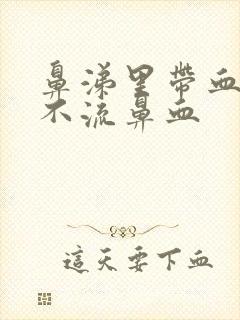 鼻涕里帶血
不流鼻血
這天要下血